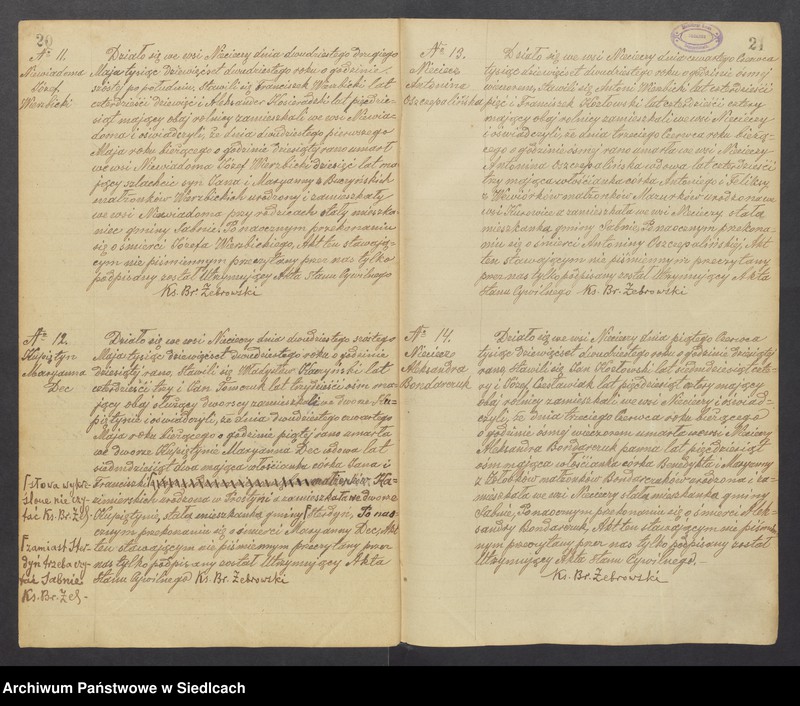 20
No 11.
Niewiadoma
Józef
Wierzbicki
Działo się we wsi Nieciecy dnia dwudziestego drugiego
Maja tysiąc dziewięćset dwudziestego roku o godzinie
szóstej po południu, Stawili się Franciszek Wierzbicki lat
czterdzieści dziewięć i Aleksander Kosieradzki lat pięćdzie-
siąt mający obaj rolnicy zamieszkali we wsi Niewia-
doma i oświadczyli, że dnia dwudziestego pierwszego
Maja roku bieżącego o godzinie dziesiątej rano umarł
we wsi Niewiadoma Józef Wierzbicki dziesięć lat ma-
jący szlachcic syn Jana i Maryanny z Buczyńskich
małżonków Wierzbickich urodzony i zamieszkały
we wsi Niewiadoma przy rodzicach stały mieszka-
niec gminy Sabnie. Po naocznym przekonaniu
się o śmierci Józefa Wierzbickiego, Akt ten stawają-
cym nie piśmiennym przeczytany przez nas tylko
podpisany został Utrzymujący Akta Stanu Cywilnego
Ks. Br. Żebrowski
No 12.
Kupiętyn
Maryanna
Dec
Działo się we wsi Nieciecy dnia dwudziestego szóstego
Maja tysiąc dziewięćset dwudziestego roku o godzinie
dziesiątej rano, stawili się Władysław lat
czterdzieści trzy i Jan lat trzydzieści osm ma-
jący obaj służący dworscy zamieszkali we dworze Ku-
piętynie i oświadczyli, że dnia dwudziestego czwartego
Maja roku bieżącego o godzinie piątej rano umarła
we dworze Kupiętynie Maryanna Dec wdowa lat
siedmdziesiąt dwa mająca włościanka córka Jana i
Franciszki małżonków Ka-
zimierskich urodzona w a zamieszkała we dworze
Kupiętynie, stała mieszkanka gminy Sterdyń. Po nao-
cznym przekonaniu się o śmierci Maryanny Dec, Akt
ten stawającym nie piśmiennym przeczytany przez
nas tylko podpisany został Utrzymujący Akta
Stanu Cywilnego Ks. Br. Żebrowski
słowa wykre-
ślone nie czy-
tać Ks. Br. Żeb.
zamiast Ster-
dyń trzeba czy-
tać Sabnie
Ks. Br. Żeb.
21
No 13.
Nieciecz
Antonina
Oszczepalińska
Działo się we wsi Nieciecy dnia czwartego Czerwca
tysiąc dziewięćset dwudziestego roku o godzinie ósmej
wieczorem, stawili się Antoni Wierzbicki lat czterdzieści
pięć i Franciszek Kozłowski lat czterdzieści cztery
mający obaj rolnicy zamieszkali we wsi Nieciecy
i oświadczyli, że dnia trzeciego Czerwca roku bieżą-
cego o godzinie ósmej rano umarła we wsi Nieciecy
Antonina Oszczepalińska wdowa lat czterdzieści
trzy mająca włościanka córka Antoniego i Feliksy
z Wiewiórków małżonków Mazurków urodzona we
wsi a zamieszkała we wsi Nieciecy stała
mieszkanka gminy Sabnie, Po naocznym przekona-
niu się o śmierci Antoniny Oszczepalińskiej, Akt
ten stawającym nie piśmiennym przeczytany
przez nas tylko podpisany został Utrzymujący Akta
Stanu Cywilnego Ks. Br. Żebrowski
No 14.
Nieciecz
Aleksandra
Bondarczuk
Działo się we wsi Nieciecy dnia piątego Czerwca
tysiąc dziewięćset dwudziestego roku o godzinie dziesiątej
rano, stawili się Jan Kozłowski lat siedmdziesiąt czte-
ry i Józef lat pięćdziesiąt mający
obaj rolnicy zamieszkali we wsi Nieciecy i oświad-
czyli, że dnia trzeciego Czerwca roku bieżącego
o godzinie ósmej wieczorem umarła we wsi Nieciecy
Aleksandra Bondarczuk panna lat pięćdziesiąt
osm mająca włościanka córka Benedykta i Maryanny
z małżonków Bondarczuków urodzona i za-
mieszkała we wsi Nieciecy stała mieszkanka gminy
Sabnie, Po naocznym przekonaniu się o śmierci Alek-
sandry Bondarczuk, Akt ten stawającym nie piśmien-
nym przeczytany przez nas tylko podpisany został
Utrzymujący Akta Stanu Cywilnego.
Ks. Br. Żebrowski
Archiwum Państwowe w Siedlcach